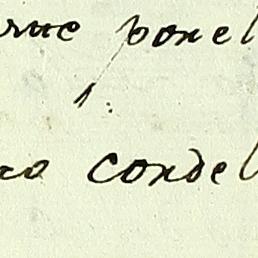 rne ponel
1:
ro condel